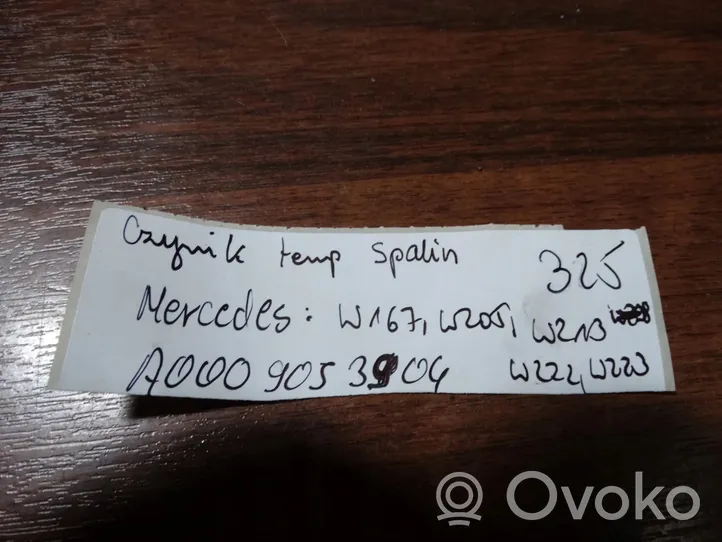 Czynik temp Spalin 325
Mercedes: W167, W205, W213
A000 905 3904 W222, W223
Ovoko